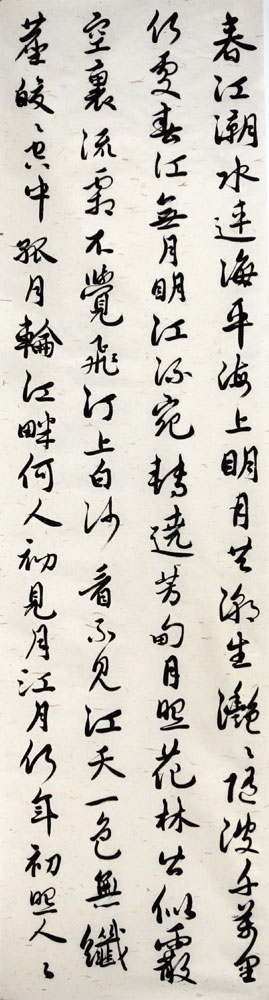 春江潮水連海平海上明月共潮生灩〻隨波千萬里
何處春江無月明江流宛轉遶芳甸月照花林皆似霰
空裏流霜不覺飛汀上白沙看不見江天一色無纖
塵皎〻空中孤月輪江畔何人初見月江月何年初照人〻